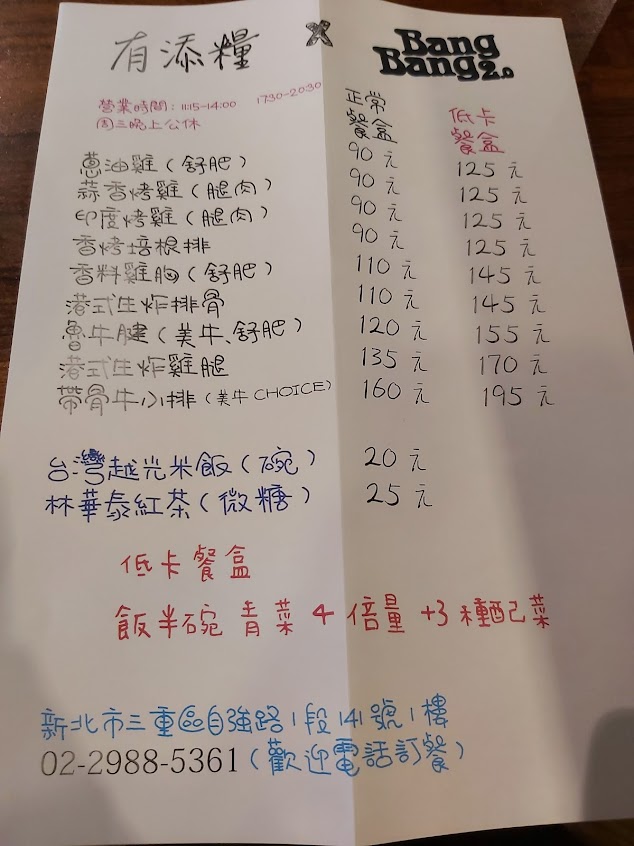 有添糧 X Bang Bang 2.0
營業時間：11:15-14:00 17:30-20:30
周三晚上公休
正常餐盒 低卡餐盒
蔥油雞（舒肥） 90元 125元
蒜香烤雞（腿肉） 90元 125元
印度烤雞（腿肉） 90元 125元
香烤培根排 90元 125元
香料雞胸（舒肥） 110元 145元
港式生炸排骨 110元 145元
魯牛腱（美牛、舒肥） 120元 155元
港式生炸雞腿 135元 170元
帶骨牛小排（美牛CHOICE） 160元 195元
台灣越光米飯（碗） 20元
林華泰紅茶（微糖） 25元
低卡餐盒
飯半碗 青菜4倍量+3種配菜
新北市三重區自強路1段141號1樓
02-2988-5361（歡迎電話訂餐）